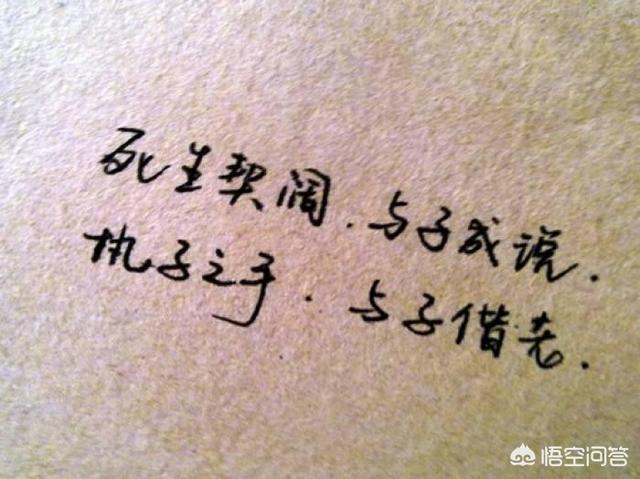 死生契阔.与子成说.
执子之手.与子偕老.
悟空问答